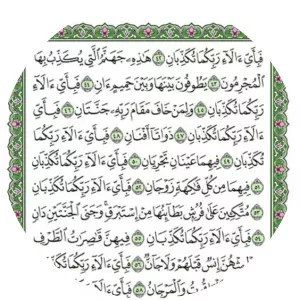 فَبِأَيِّ ءَالَآءِ رَبِّكُمَا تُكَذِّبَانِ ٤٢ هَٰذِهِۦ جَهَنَّمُ ٱلَّتِي يُكَذِّبُ بِهَا
ٱلْمُجْرِمُونَ ٤٣ يَطُوفُونَ بَيْنَهَا وَبَيْنَ حَمِيمٍ ءَانٍ ٤٤ فَبِأَيِّ ءَالَآءِ
رَبِّكُمَا تُكَذِّبَانِ ٤٥ وَلِمَنْ خَافَ مَقَامَ رَبِّهِۦ جَنَّتَانِ ٤٦ فَبِأَيِّ
ءَالَآءِ رَبِّكُمَا تُكَذِّبَانِ ٤٧ ذَوَاتَآ أَفْنَانٍ ٤٨ فَبِأَيِّ ءَالَآءِ رَبِّكُمَا
تُكَذِّبَانِ ٤٩ فِيهِمَا عَيْنَانِ تَجْرِيَانِ ٥٠ فَبِأَيِّ ءَالَآءِ رَبِّكُمَا تُكَذِّبَانِ
٥١ فِيهِمَا مِن كُلِّ فَٰكِهَةٍ زَوْجَانِ ٥٢ فَبِأَيِّ ءَالَآءِ رَبِّكُمَا تُكَذِّبَانِ
٥٣ مُتَّكِـِٔينَ عَلَىٰ فُرُشٍۭ بَطَآئِنُهَا مِنْ إِسْتَبْرَقٍ وَجَنَى ٱلْجَنَّتَيْنِ دَانٍ
٥٤ فَبِأَيِّ ءَالَآءِ رَبِّكُمَا تُكَذِّبَانِ ٥٥ فِيهِنَّ قَٰصِرَٰتُ ٱلطَّرْفِ
إِنسٌ قَبْلَهُمْ وَلَا جَآنٌّ ٥٦ فَبِأَيِّ ءَالَآءِ رَبِّكُمَا تُكَذِّبَانِ
وَٱلْمَرْجَانُ ٥٨